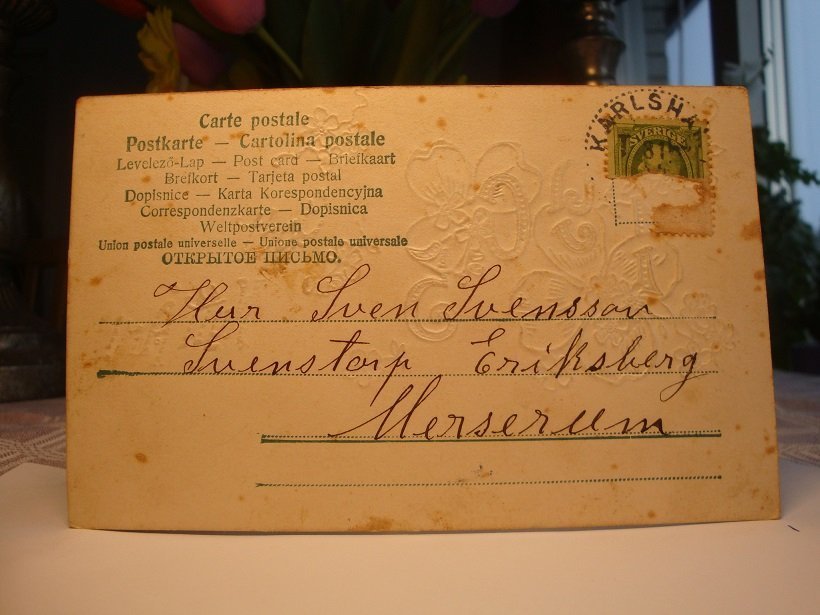 Carte postale
Postkarte — Cartolina postale
Levelező-Lap — Post card — Briefkaart
Brefkort — Tarjeta postal
Dopisnice — Karta Korespondencyjna
Correspondenzkarte — Dopisnica
Weltpostverein
Union postale universelle — Unione postale universale
ОТКРЫТОЕ ПИСЬМО.
KARLSHA
SVERIGE
Herr Sven Svensson
Svenstorp Eriksberg
Merserum